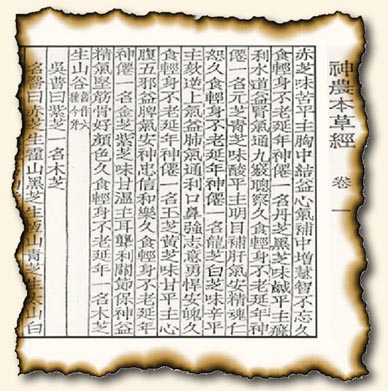 神農本草經 卷一
赤芝味苦平主胸中結益心氣補中增慧智不忘久
食輕身不老延年神僊一名丹芝黑芝味鹹平主癃
利水道益腎氣通九竅聰察久食輕身不老延年神
僊一名元芝青芝味酸平主明目補肝氣安精魂仁
恕久食輕身不老延年神僊一名龍芝白芝味辛平
主欬逆上氣益肺氣通利口鼻强志意勇悍安魄久
食輕身不老延年神僊一名玉芝黃芝味甘平主心
腹五邪益脾氣安神忠信和樂久食輕身不老延年
神僊一名金芝紫芝味甘溫主耳聾利關節保神益
精氣堅筋骨好顏色久食輕身不老延年一名木芝
生山谷舊作六種今并
吳普曰紫芝一名木芝
名醫曰赤芝生霍山黑芝生恒山青芝生太山白